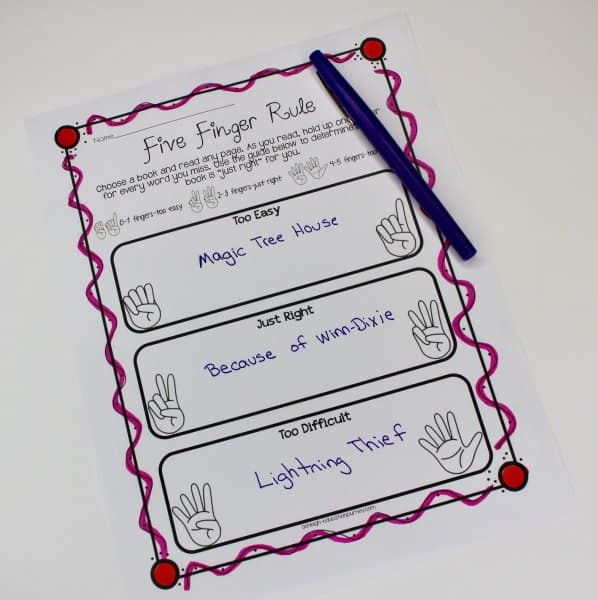 Name
Five Finger Rule
Choose a book and read any page. As you read, hold up on
for every word you miss. Use the guide below to determine
book is "just right" for you.
0-1 fingers-too easy 2-3 fingers-just right 4-5 fingers-too
Too Easy
Magic Tree House
Just Right
Because of Winn-Dixie
Too Difficult
Lightning Thief